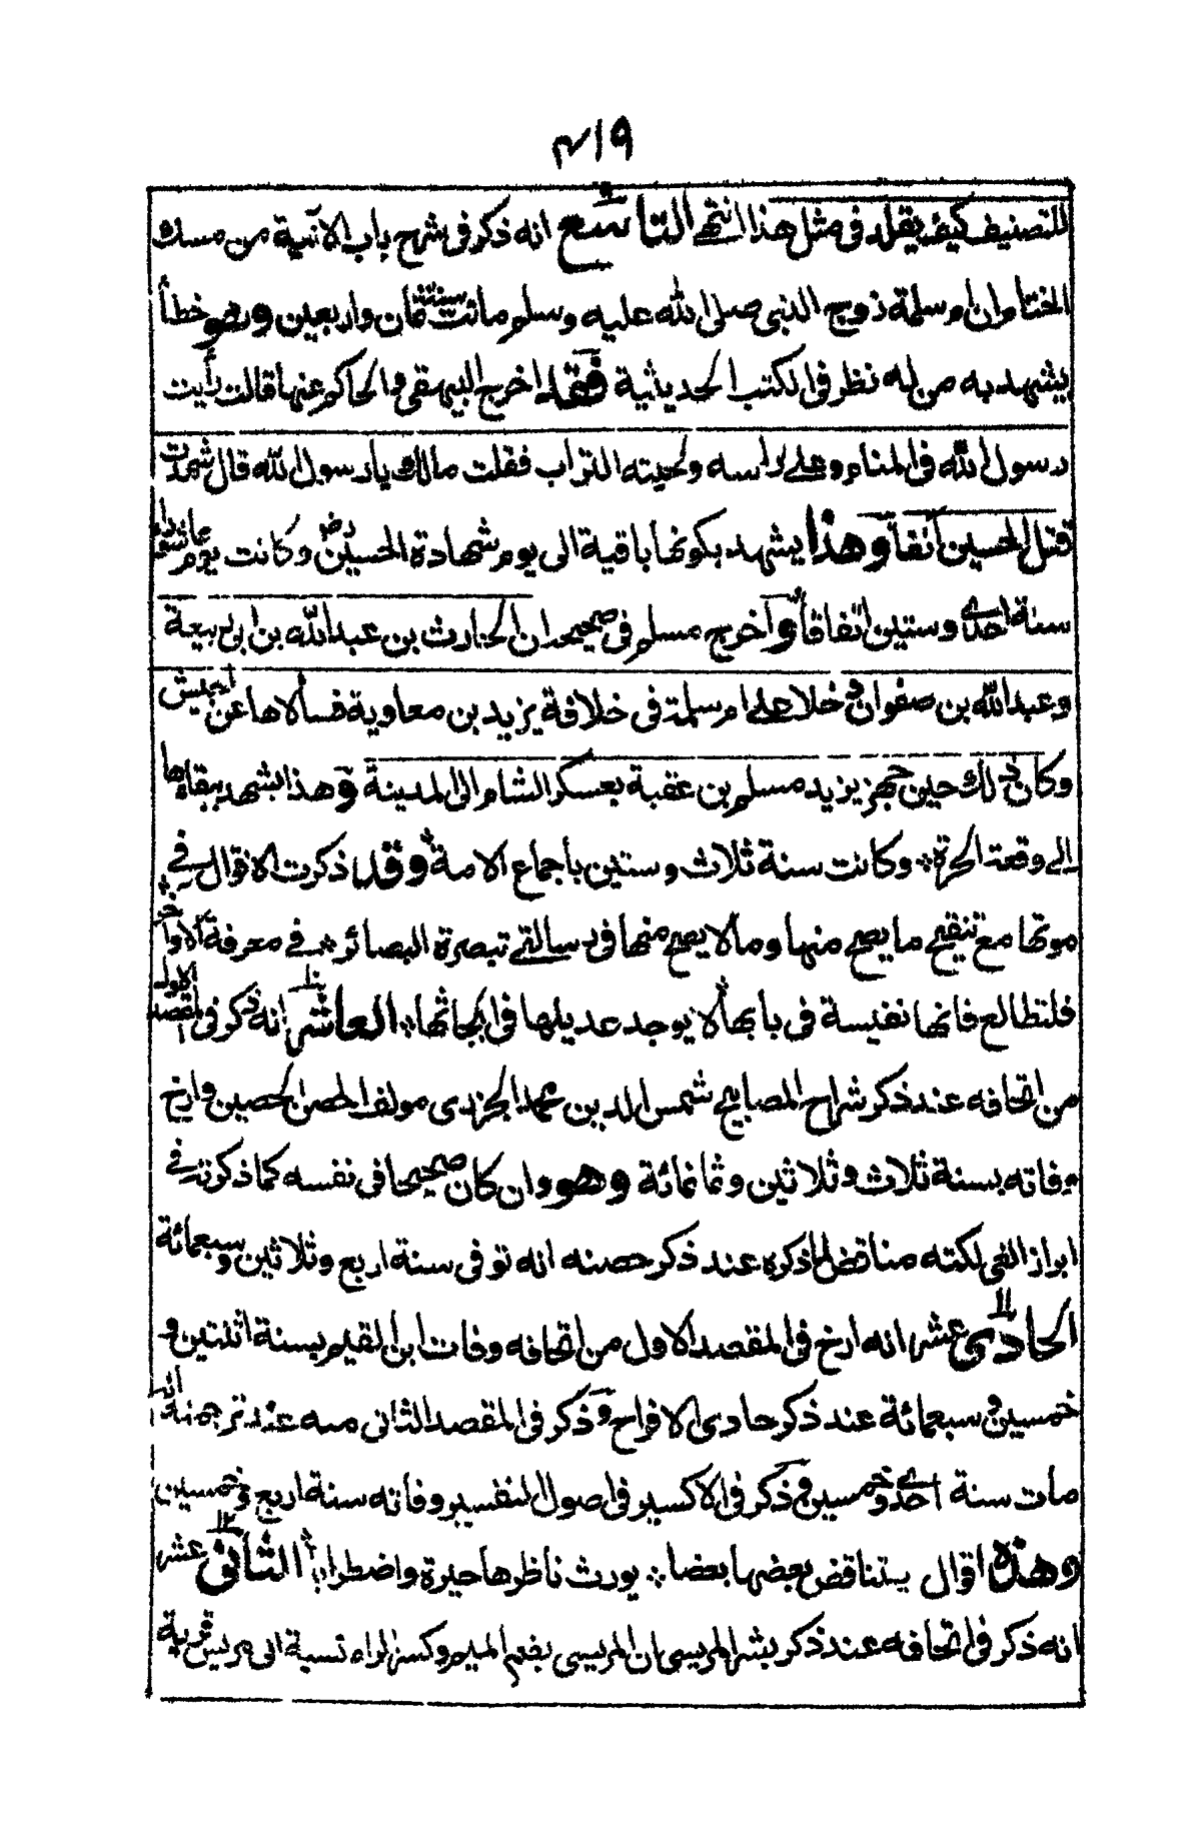 ٤١٩
للتصنيف كيف يقلد فى مثل هذا انتهى التاسع انه ذكر فى شرح باب الآنية من مسك
الختام ان ام سلمة زوج النبى صلى الله عليه وسلم ماتت سنة ثمان واربعين وهو خطأ
يشهد به من له نظر فى الكتب الحديثية فقد اخرج البيهقى والحاكم عنها قالت رأيت
رسول الله فى المنام وعلى راسه ولحيته التراب فقلت مالك يا رسول الله قال شهدت
قتل الحسين آنفا وهذا يشهد بكونها باقية الى يوم شهادة الحسين رض وكانت يوم عاشوراء
سنة احدى وستين اتفاقا واخرج مسلم فى صحيحه ان الحارث بن عبد الله بن ابى ربيعة
وعبد الله بن صفوان دخلا على ام سلمة فى خلافة يزيد بن معاوية فسألاها عن الجيش
وكان ذلك حين جهز يزيد مسلم بن عقبة بعسكر الشام الى المدينة وهذا يشهد ببقاءها
الى وقعة الحرة وكانت سنة ثلاث وستين باجماع الامة وقد ذكرت الاقوال فى
موتها مع تنقيح ما يصح منها وما لا يصح منها فى رسالتى تبصرة البصائر فى معرفة الاواخر
فلتطالع فانها نفيسة فى بابها لا يوجد عديلها فى ابحاثها العاشر انه ذكر فى المقصد الاول
من اتحافه عند ذكر شراح المصابيح شمس الدين محمد الجزرى مولف الحصن الحصين وارخ
وفاته بسنة ثلاث وثلاثين وثمانمائة وهو وان كان صحيحا فى نفسه كما ذكرته فى
ابراز الغى لكنه مناقض لما ذكره عند ذكر حصنه انه توفى سنة اربع وثلاثين وسبعمائة
الحادى عشر انه ارخ فى المقصد الاول من اتحافه وفات ابن القيم بسنة اثنتين و
خمسين وسبعمائة عند ذكر حادى الافراح وذكر فى المقصد الثانى منه عند ترجمته انه
مات سنة احدى وخمسين وذكر فى الاكسير فى اصول التفسير وفاته سنة اربع وخمسين
وهذه اقوال يتناقض بعضها بعضا يورث ناظرها حيرة واضطرابا الثانى عشر
انه ذكر فى اتحافه عند ذكر بشر المريسى ان المريسى بفتح الميم وكسر الراء نسبة الى مريس قرية